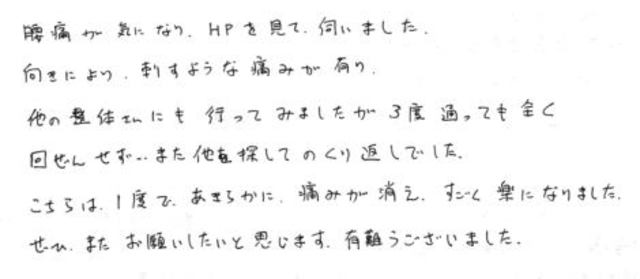 腰痛が気になり、HPを見て、伺いました。
向きにより、刺すような痛みが有り、
他の整体さんにも行ってみましたが3度通っても全く
回ぜんせず‥また他を探してのくり返しでした。
こちらは、1度で、あきらかに、痛みが消え、すごく楽になりました。
ぜひ、またお願いしたいと思います。有難うございました。